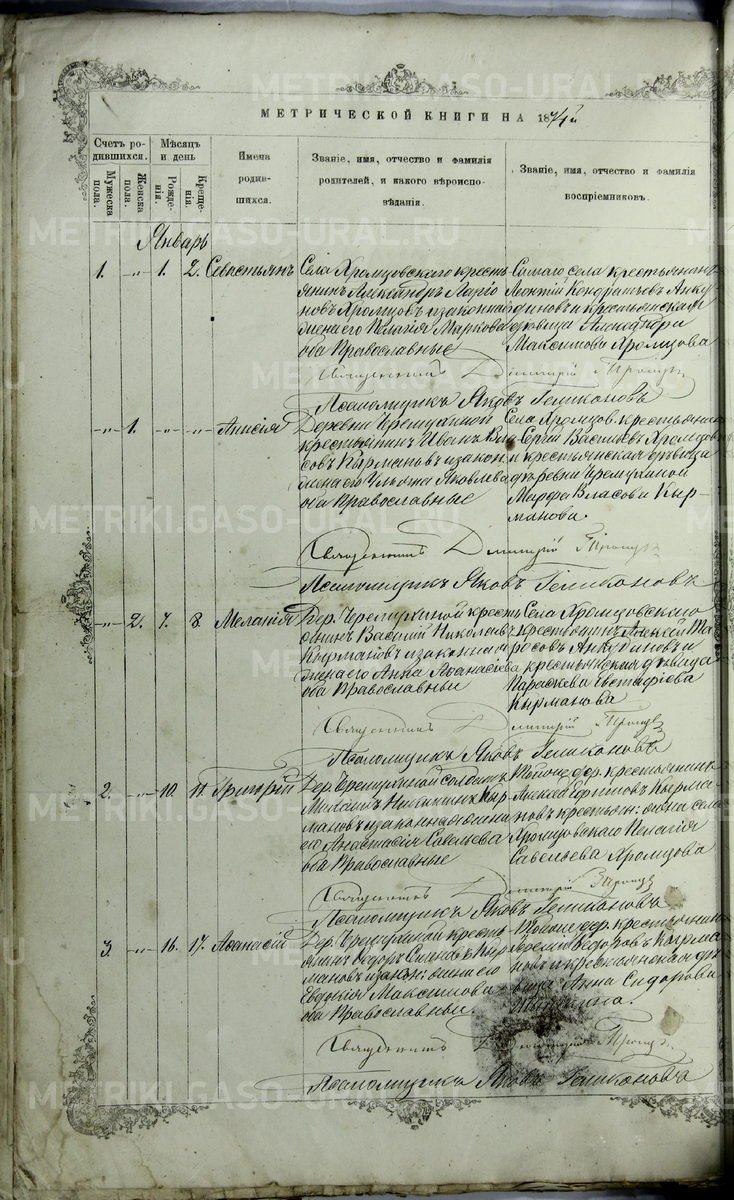 METRIKI.GASO-URAL.RU
МЕТРИЧЕСКОЙ КНИГИ НА 1874й
Счетъ родившихся.
Мужеска пола.
Женска пола.
Мѣсяцъ и день
Рожденія.
Крещенія.
Имена родившихся.
Званіе, имя, отчество и фамилія
родителей, и какого вѣроиспо-
вѣданія.
Званіе, имя, отчество и фамилія
воспріемниковъ.
Январь
1. -„- 1. 2. Севастьянъ
Села Хромцовскаго кресть
янинъ Александръ
новъ Хромцовъ и законная
жена его Пелагія Маркова
оба Православные
Самаго села крестьянинъ
Леонтій Кондратьевъ Анку
диновъ и крестьянская
дѣвица Александра
Максимова Хромцова
Священникъ Димитрій
Псаломщикъ Яковъ Геликоновъ
-„- 1. -„- -„- Анисія
Деревни Черемухиной
крестьянинъ Иванъ Вла
совъ Кырмановъ и закон.
жена его Ульяна Яковлева
оба Православные
Села Хромцов. крестьянинъ
Сергій Васильевъ Хромцовъ
и крестьянская дѣвица
деревни Черемухиной
Марфа Власова Кыр-
манова.
Священникъ Димитрій
Псаломщикъ Яковъ Геликоновъ
-„- 2. 7. 8. Меланія
Дер. Черемухиной кресть
янинъ Василій Николаевъ
Кырмановъ и законная
жена его Анна Аѳанасіева
оба Православные
Села Хромцовскаго
крестьянинъ Алексѣй Та
расовъ Анкудиновъ и
крестьянская дѣвица
Параскева Евстафіева
Кырманова
Священникъ Димитрій
Псаломщикъ Яковъ Геликоновъ
2. -„- 10. 11. Григорій
Дер. Черемухиной солдатъ
Михаилъ Никитинъ Кыр
мановъ и законная жена
его Анастасія Савельева
оба Православные
Тойже дер. крестьянинъ
Алексѣй Ефимовъ Кырма
новъ и крестьян: жена села
Хромцовскаго Пелагія
Савельева Хромцова
Священникъ Димитрій
Псаломщикъ Яковъ Геликоновъ
3. -„- 16. 17. Аѳанасій
Дер. Черемухиной кресть
янинъ Ѳедоръ Кыр
мановъ и закон: жена его
Евдокія Максимова
оба Православные.
Тойже дер. крестьянинъ
Ѳедоровъ Кырма
новъ и крестьянская дѣ
вица Анна Сидорова
Священникъ Димитрій
Псаломщикъ Яковъ Геликоновъ